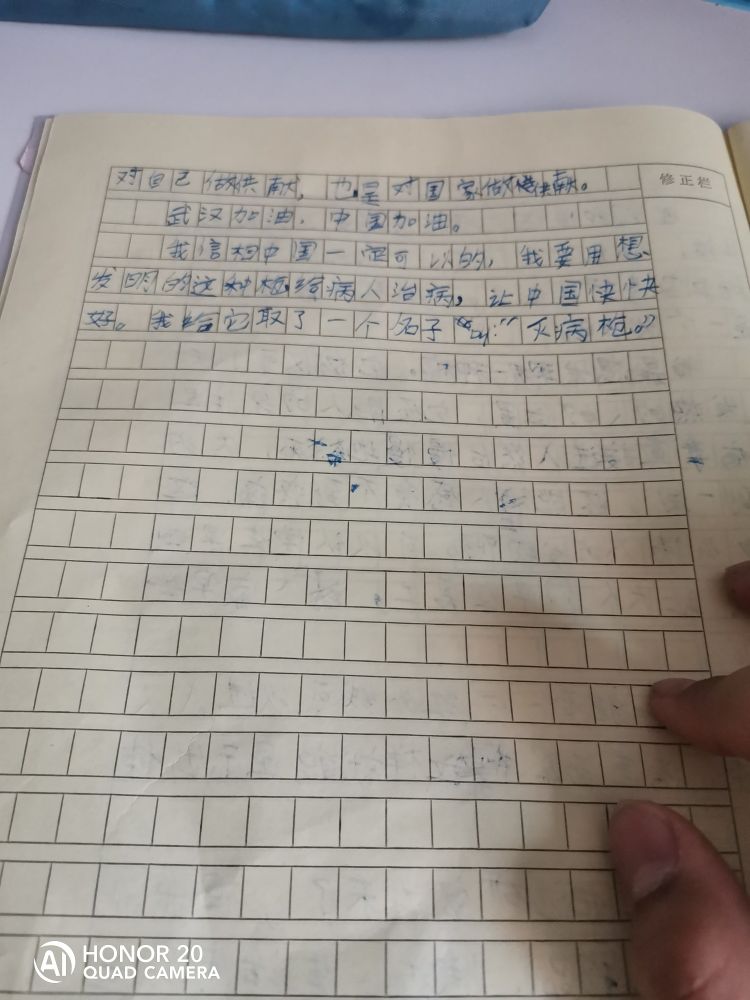 对自己做供献，也是对国家做供献。
修正栏
武汉加油，中国加油。
我信相中国一定可以的，我要用想
发明的这种枪给病人治病，让中国快快
好。我给它取了一个名子“灭病枪。”
HONOR 20
AI QUAD CAMERA